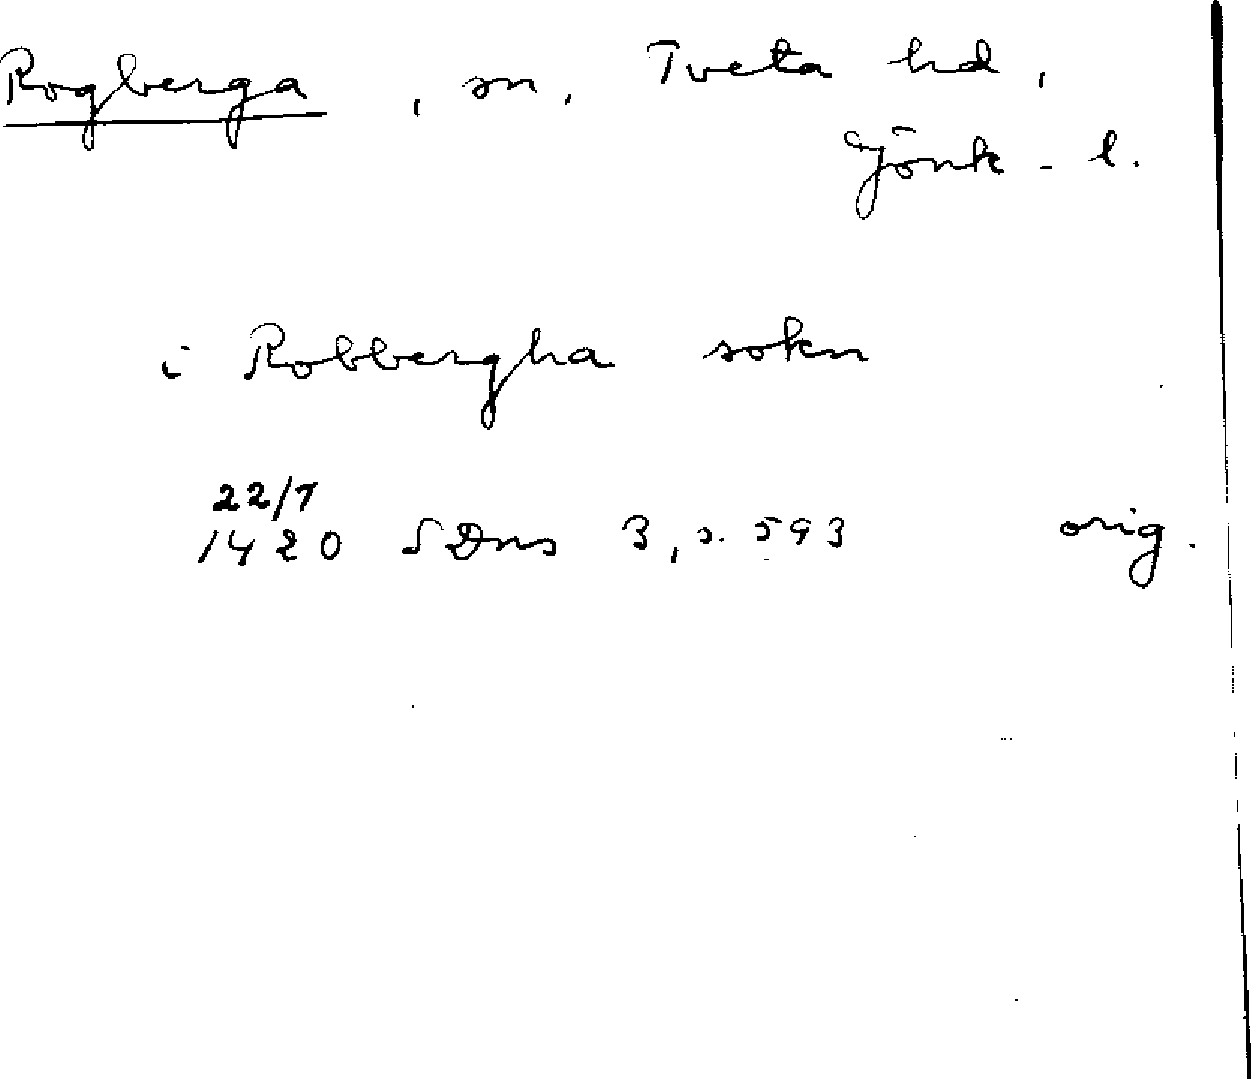 Rogberga, sn, Tveta hd,
Jönk-l.
i Robbergha sokn
22/7
1420 SDns 3, s. 593 orig.